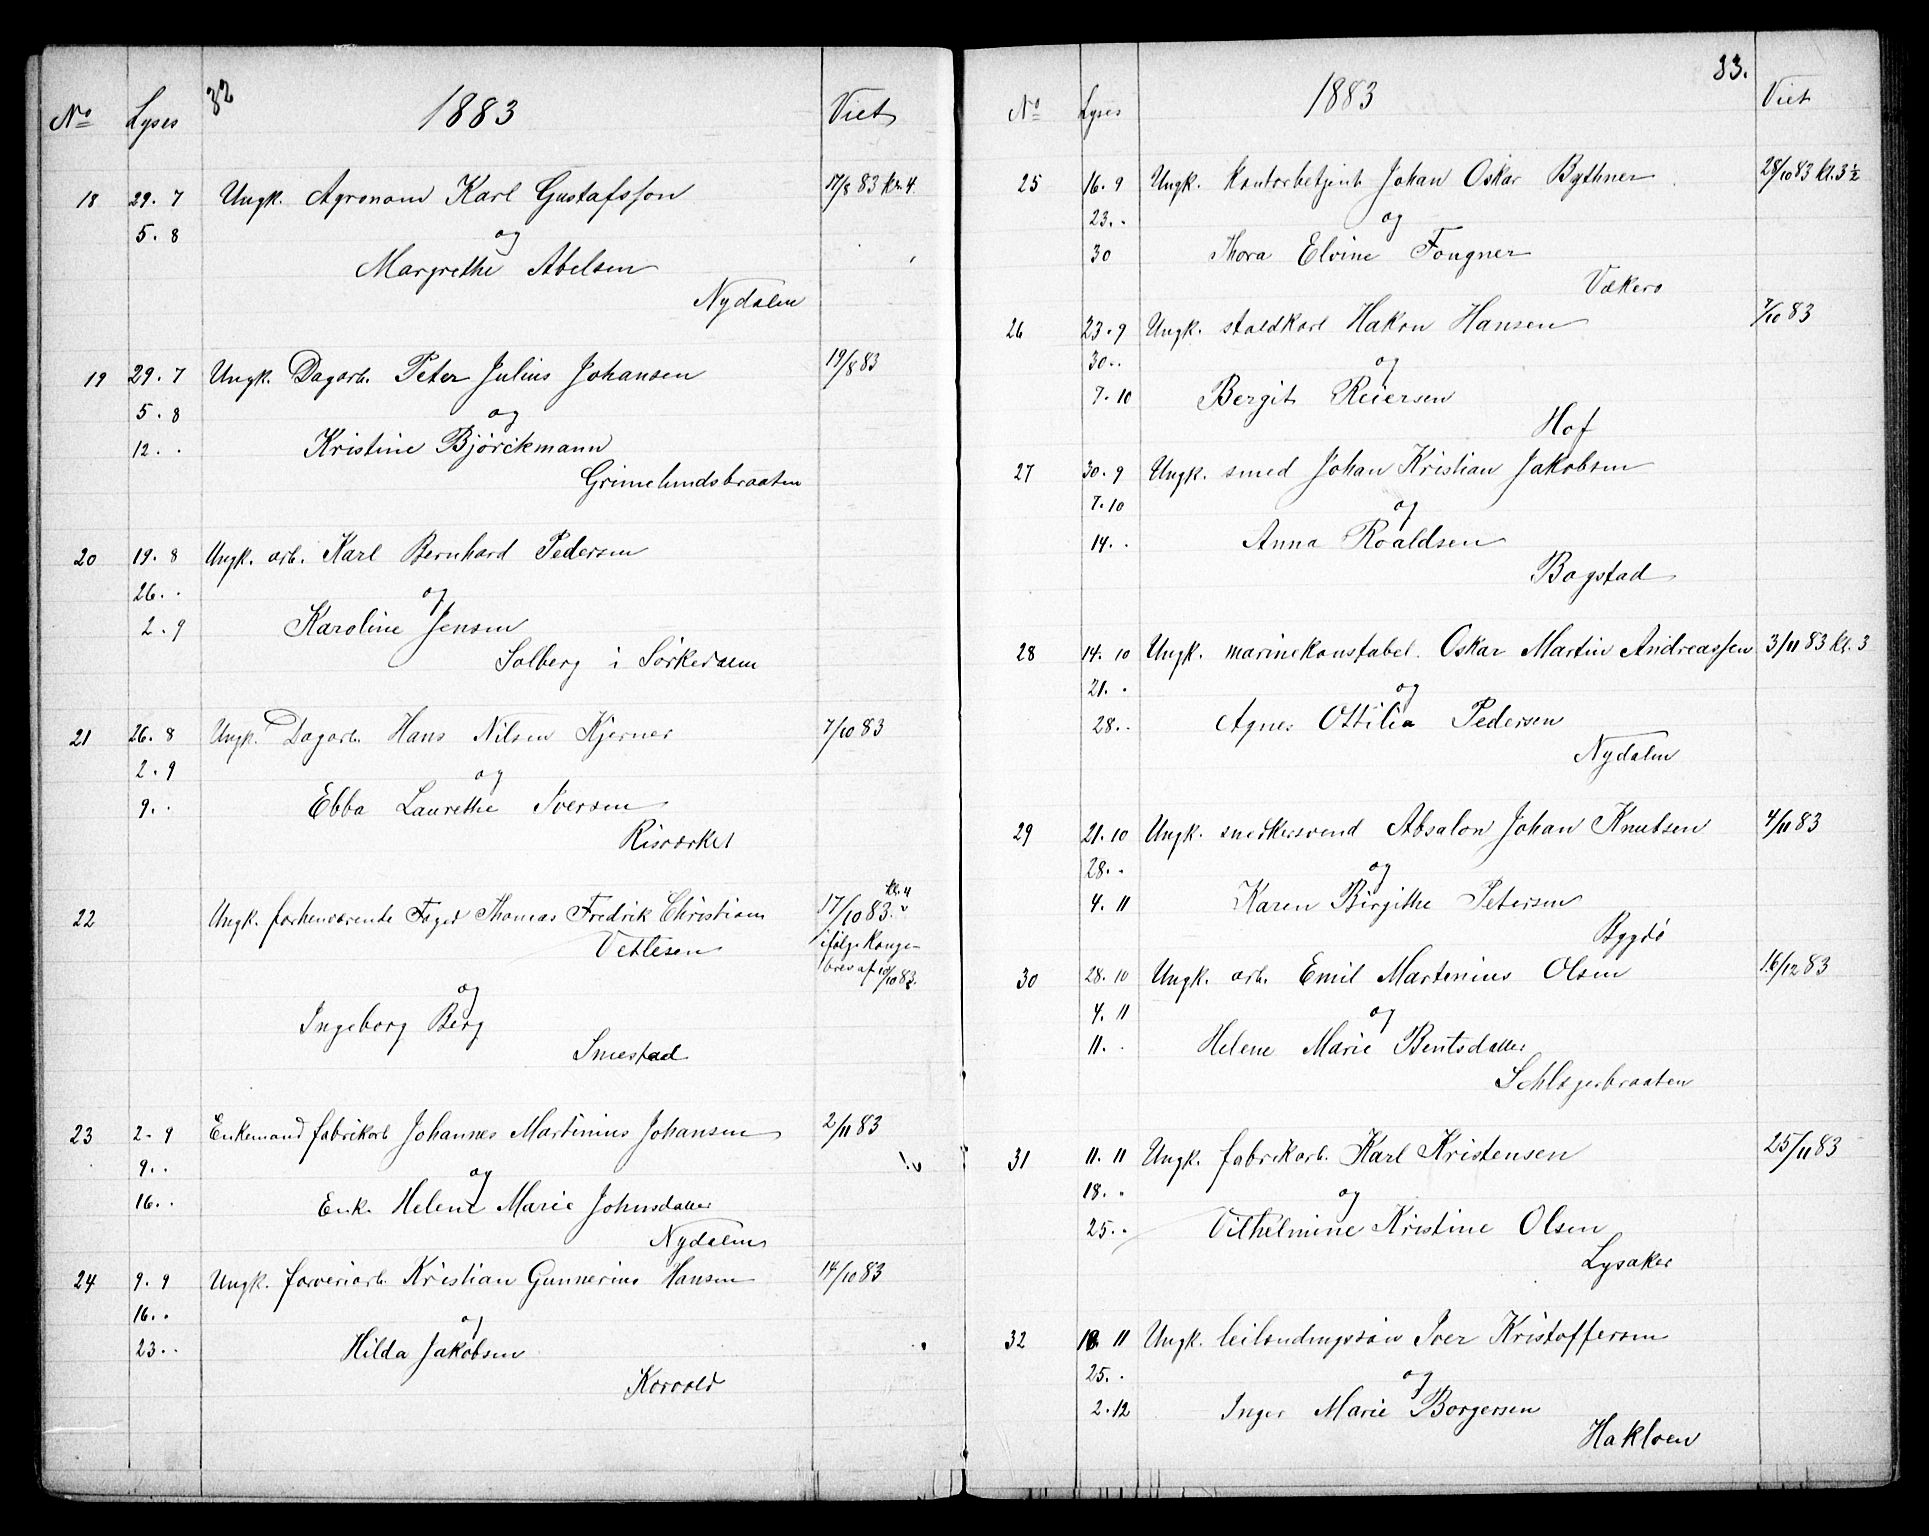 32
1883
No Lyses Viet
18 29. 7 Ungk. Agronom Karl Gustafsson 17/8 83 kl. 4.
5. 8 og
Margrethe Abelsen
Nydalen
19 29. 7 Ungk. Dagarb. Peter Julius Johansen 19/8 83
5. 8 og
12. . Kristine Björckmann
Grimelundsbraaten
20 19. 8 Ungk. arb. Karl Bernhard Pedersen
26. . og
2. 9 Karoline Jensen
Solberg i Sörkedalen
21 26. 8 Ungk. Dagarb. Hans Nilsen Kjerner 7/10 83
2. 9 og
9. . Ebba Laurethe Iversen
Risværket
22 Ungk. forhenværende Foged Thomas Fredrik Christian 17/10 83. kl. 4
Vetlesen ifølge Konge-
brev af 10/10 83.
og
Ingeborg Berg
Smestad
23 2. 9 Enkemand fabrikarb Johannes Martinius Johansen 2/11 83
9. . og
16. . Enk. Helene Marie Johnsdatter
Nydalen
24 9. 9 Ungk. farveriarb. Kristian Gunnerius Hansen 14/10 83
16. . og
23. . Hilda Jakobsen
Korvold
33.
1883
No Lyses Viet
25 16. 9 Ungk. kontorbetjent Johan Oskar Bythner 28/10 83 kl. 3 1/2
23. . og
30 Thora Elvine Fougner
Vækerø
26 23. 9 Ungk. staldkarl Hakon Hansen 7/10 83
30. . og
7. 10 Bergit Reiersen
Hof
27 30. 9 Ungk. smed Johan Kristian Jakobsen
7. 10 og
14. . Anna Roaldsen
Bogstad
28 14. 10 Ungk. marinekonstabel. Oskar Martin Andreassen 3/11 83 kl. 3
21. . og
28. . Agnes Ottilia Pedersen
Nydalen
29 21. 10 Ungk. snedkersvend Absalon Johan Knutsen 4/11 83
28. . og
4. 11 Karen Birgithe Petersen
Bygdö
30 28. 10 Ungk. arb. Emil Martenius Olsen 16/12 83
4. 11 og
11. . Helene Marie Bentsdatter
Schlagerbraaten
31 11. 11 Ungk. fabrikarb. Karl Kristensen 25/11 83
18. . og
25. . Vilhelmine Kristine Olsen
Lysaker
32 18. 11 Ungk. leilændingssön Iver Kristoffersen
25. . og
2. 12 Inger Marie Borgersen
Hakloen